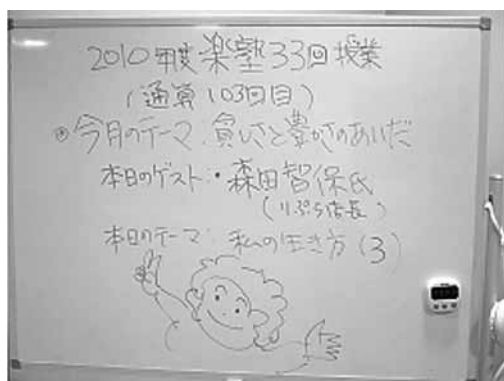 2010年度楽塾33回授業
(通算103回目)
◎今月のテーマ:貧しさと豊かさのあいだ
本日のゲスト:森田智保氏
(りぷら店長)
本日のテーマ:私の生き方(3)